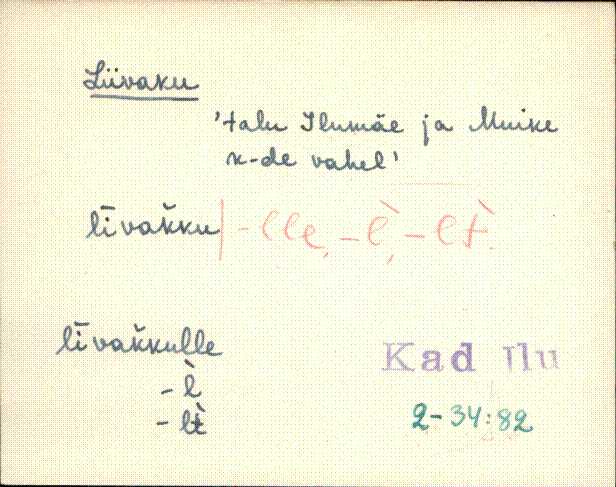 Liivaku
'talu Ilumäe ja Muike
k-de vahel'
līvak̆ku | -lle, -l̀, -lt̀.
līvak̆kulle
-l̀
-lt̀
Kad Ilu
2-34:82